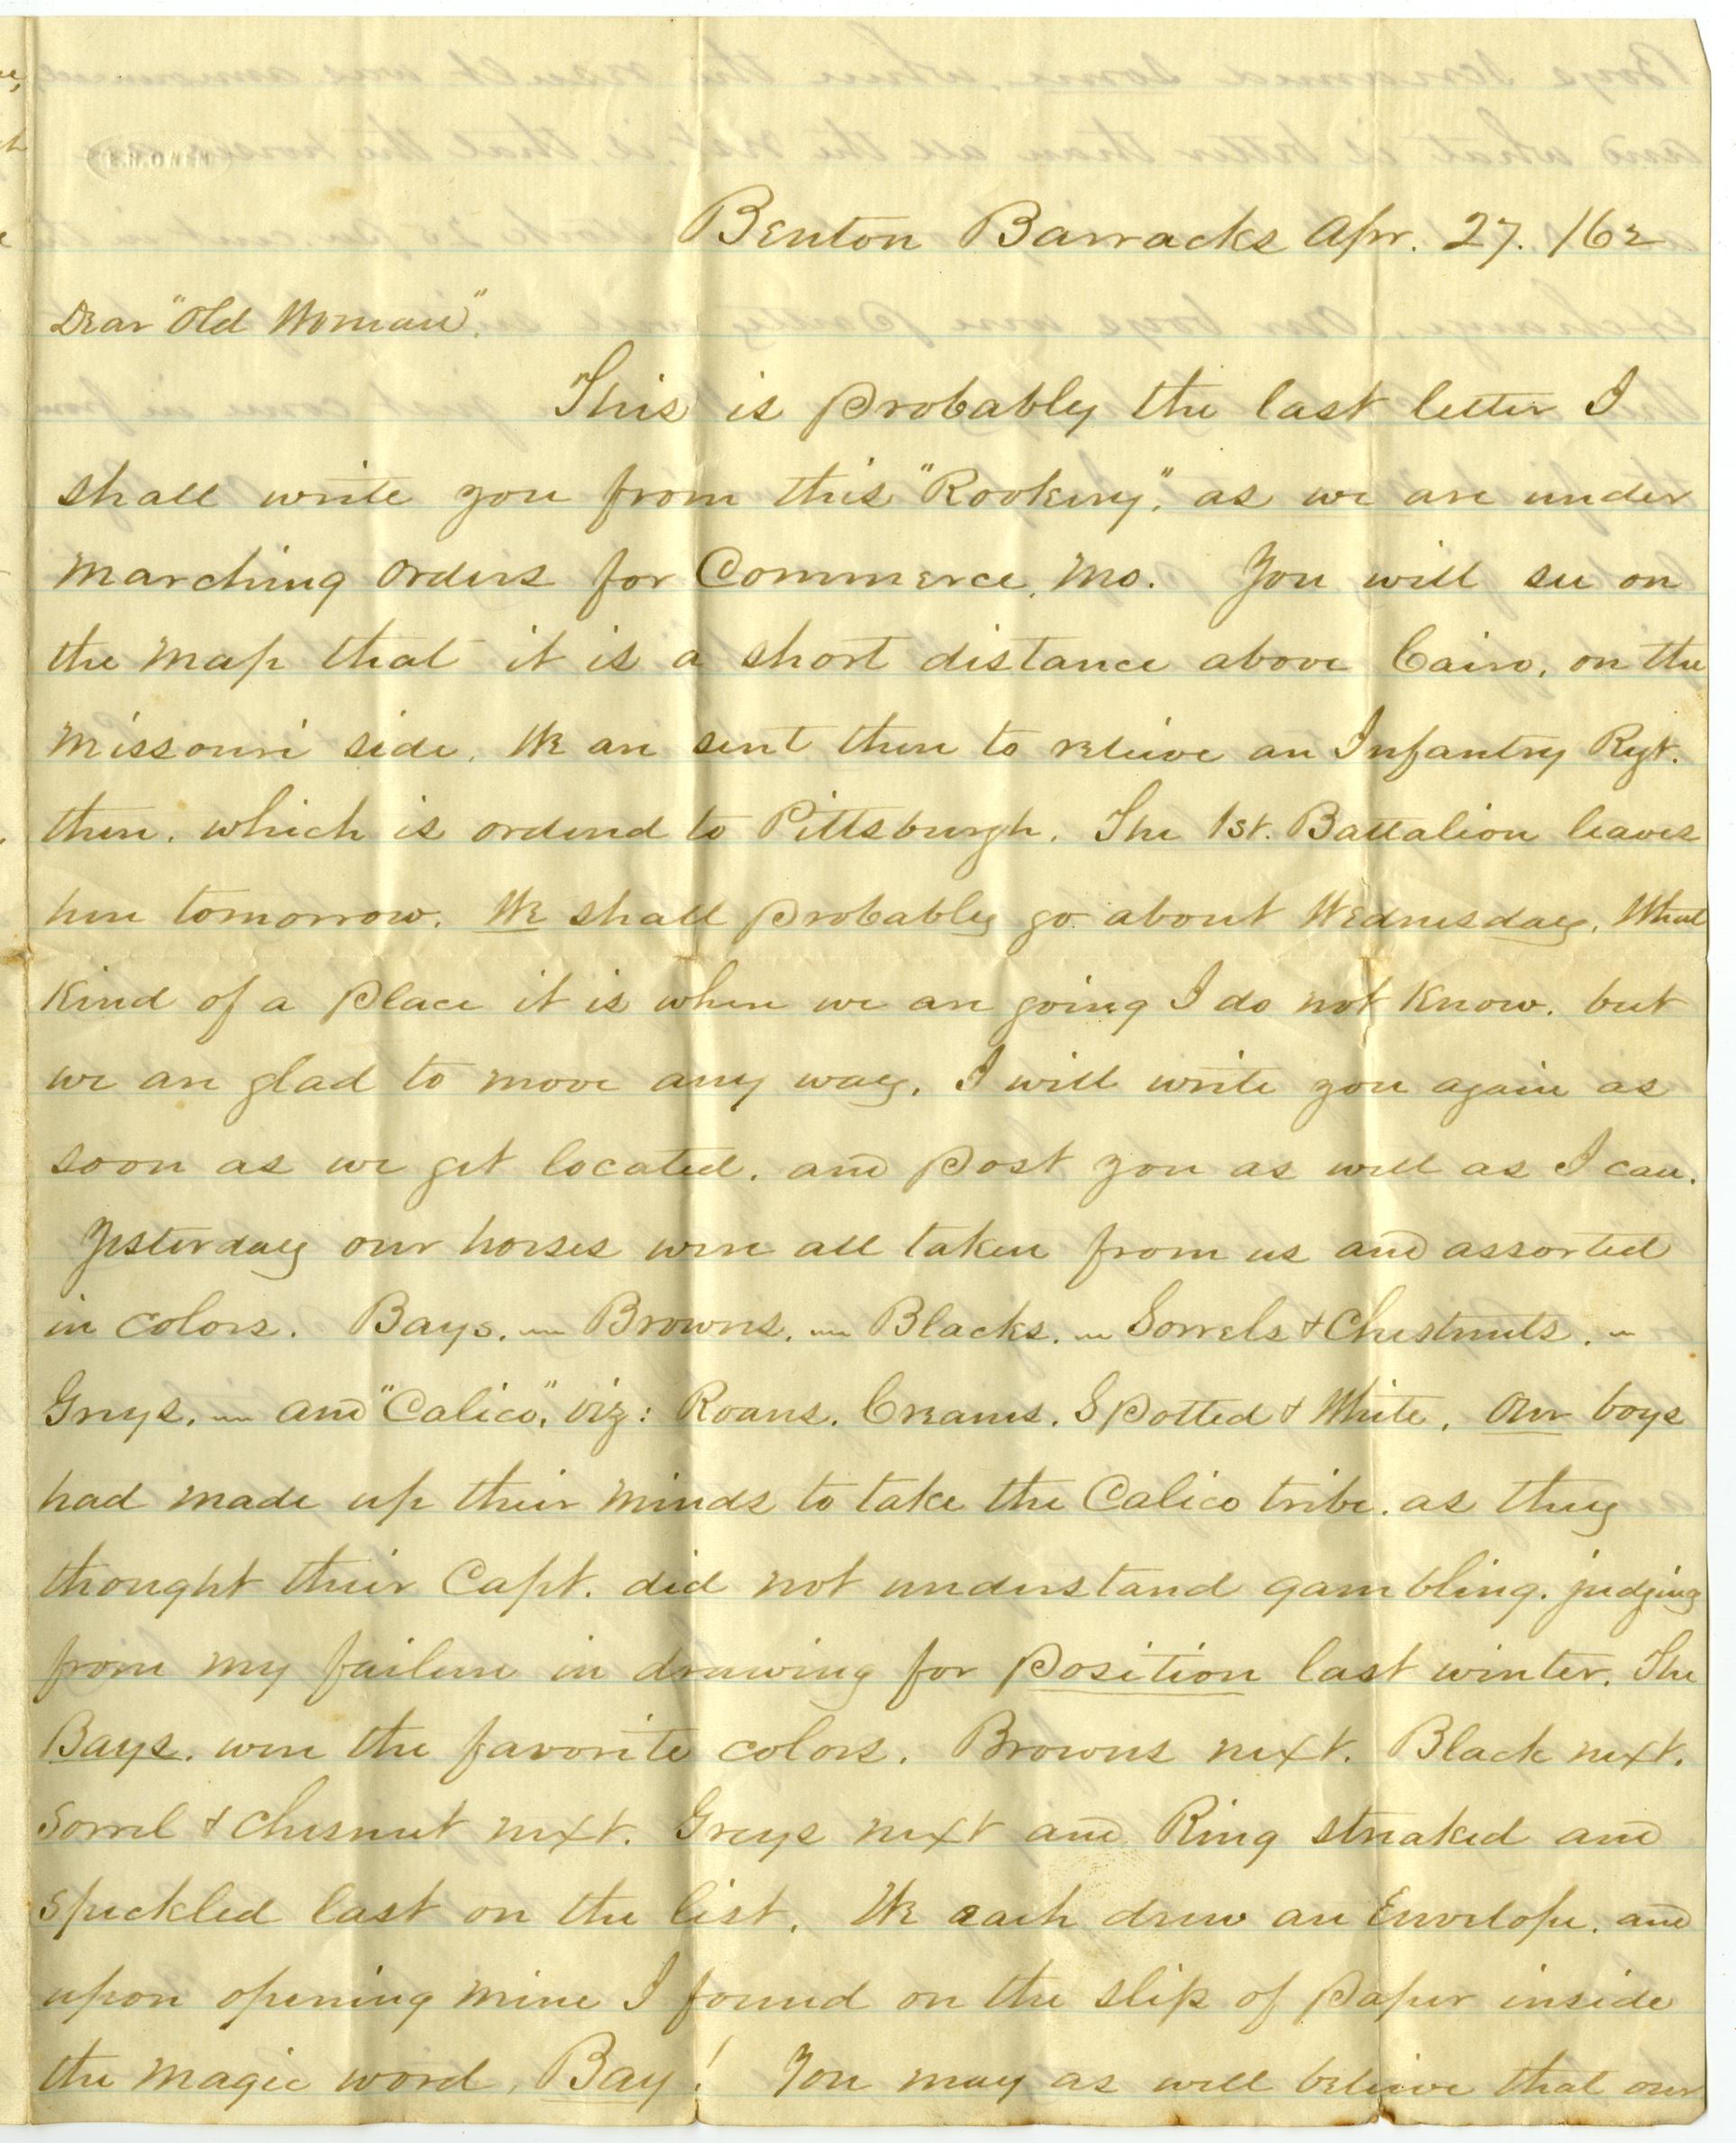 Benton Barracks Apr. 27. /62
Dear "Old Woman".
This is probably the last letter I
shall write you from this "Rookery", as we are under
marching orders for Commerce, Mo. You will see on
the map that it is a short distance above Cairo, on the
Missouri side. We are sent there to relieve an Infantry Regt.
there, which is ordered to Pittsburgh. The 1st. Battalion leaves
here tomorrow. We shall probably go about Wednesday. What
kind of a place it is where we are going I do not know, but
we are glad to move any way. I will write you again as
soon as we get located, and post you as well as I can.
Yesterday our horses were all taken from us and assorted
in colors. Bays, — Browns, — Blacks, — Sorrels & Chestnuts, —
Greys, — and "Calico", viz: Roans, Creams, Spotted & White. Our boys
had made up their minds to take the Calico tribe, as they
thought their Capt. did not understand gambling, judging
from my failure in drawing for position last winter. The
Bays, were the favorite colors. Browns next. Black next.
Sorrel & chesnut next. Greys next and Ring streaked and
speckled last on the list. We each drew an Envelope, and
upon opening mine I found on the slip of paper inside
the magic word, Bay! You may as well believe that our